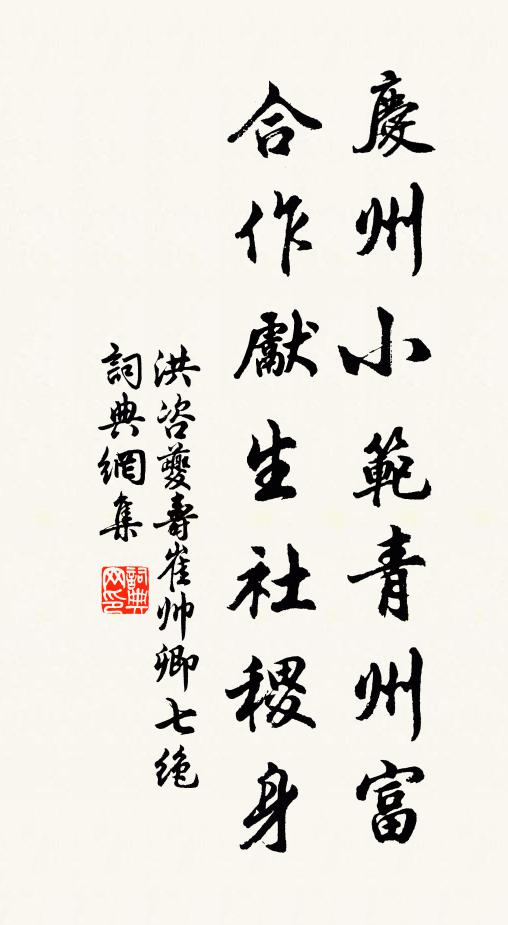 慶州小範青州富
合作獻生社稷身
洪咨夔壽崔帅卿七絶
詞典網集
詞典网印